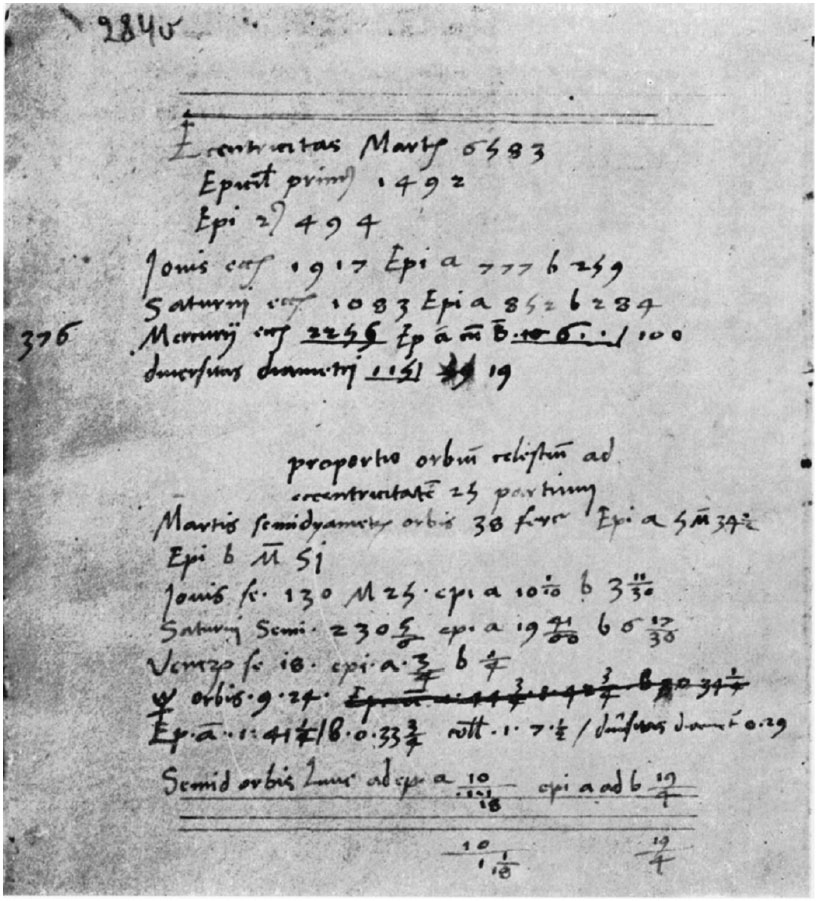 284v
Eccentricitas Martis 6583
Epicicli primi 1492
Epi 2i 494
Jovis ecc 1917 Epi a 777 b 259
Saturni ecc 1083 Epi a 852 b 284
376 Mercurii ecc 2256 Ep a cū b 6 / 100
diversitas diametri 115 19
proportio orbiū celestiū ad
eccentricitatē 25 partium
Martis semidyameter orbis 38 fere Epi a 5 M 34
Epi b M 51
Jovis se. 130 M 25. epi a 10 1/10 b 3 11/30
Saturni Semi. 230 5/6 epi a 19 41/60 b 6 17/30
Veneris se 18. epi. a. 3/4 b 1/4
orbis. 9. 24.
Ep. a. 1. 41 1/4 / b. 0. 33 3/4 coll. 1. 7. 1/2 / diversitas diamet 0. 29
Semid orbis Lune ad epi a 10/1 1/18 epi a ad b 19/4
10/1 1/18 19/4